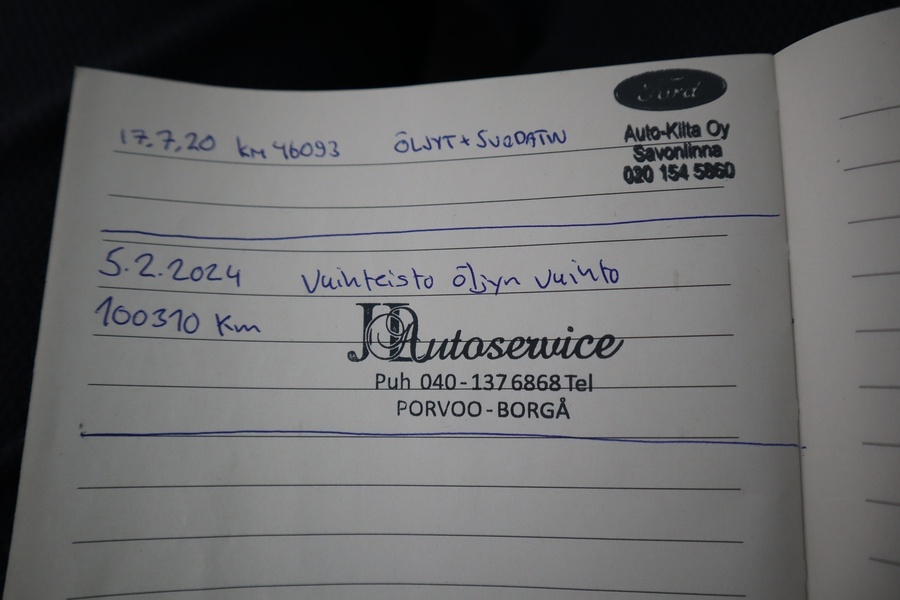 Ford
17.7.20 KM 46093 ÖLJYT + SUODATIN
Auto-Kilta Oy
Savonlinna
020 154 5860
5.2.2024 Vaihteisto öljyn vaihto
100310 Km
JOL Autoservice
Puh 040-137 6868 Tel
PORVOO-BORGÅ